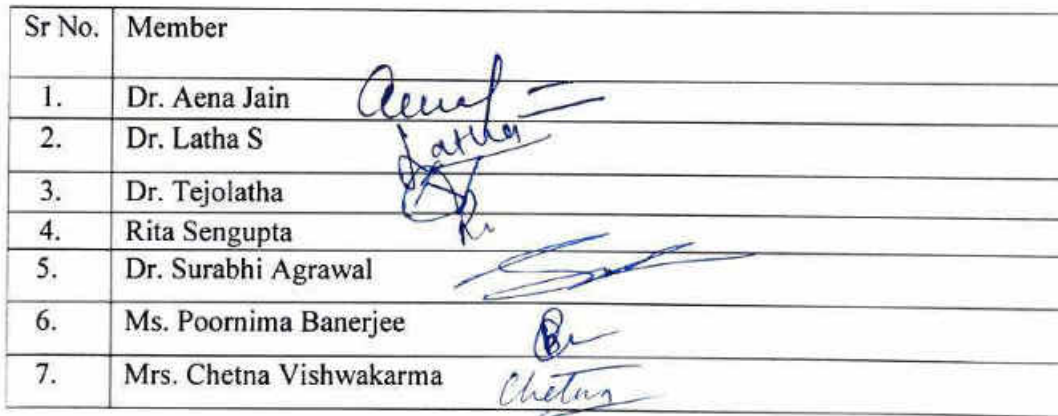 Sr No. Member
1. Dr. Aena Jain Aena
2. Dr. Latha S Latha
3. Dr. Tejolatha
4. Rita Sengupta
5. Dr. Surabhi Agrawal
6. Ms. Poornima Banerjee
7. Mrs. Chetna Vishwakarma Chetna